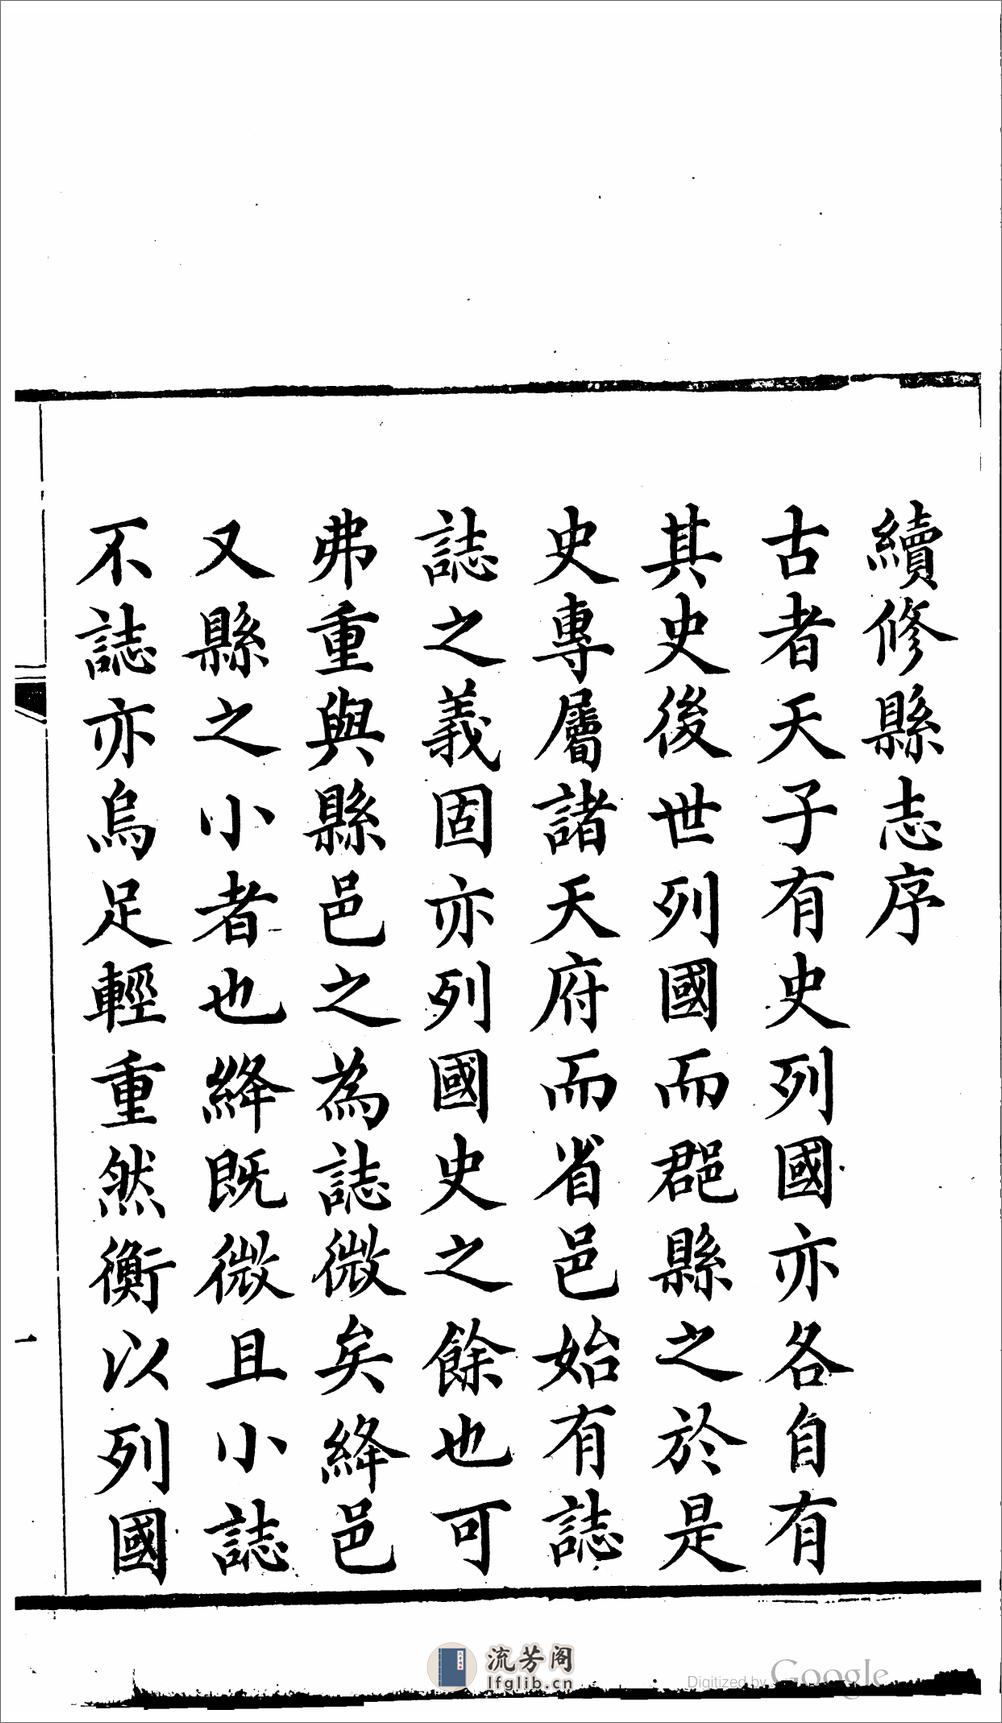 續修縣志序
古者天子有史列國亦各自有
其史後世列國而郡縣之於是
史專屬諸天府而省邑始有誌
誌之義固亦列國史之餘也可
弗重與縣邑之為誌微矣絳邑
又縣之小者也絳既微且小誌
不誌亦烏足輕重然衡以列國
一
流芳阁
lfglib.cn
Digitized by Google